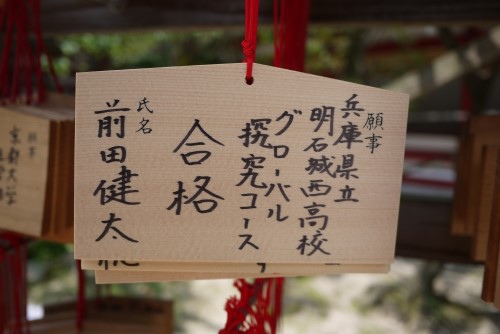 願事
兵庫県立
明石城西高校
グローバル
探究コース
合格
氏名
前田健太
願事
京都大学